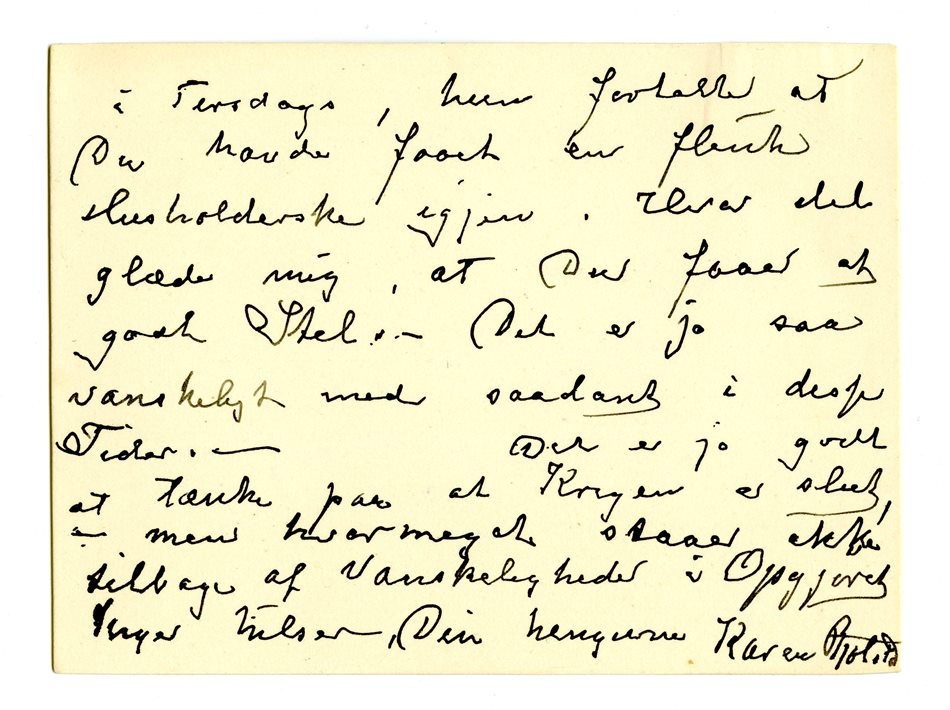 i Tirsdags, hun fortalte at
Du havde faaet en flink
Husholderske igjen. Hvor det
glæde mig, at Du faaer et
godt Stel. — Det er jo saa
vanskeligt med saadant i disse
Tider. — Det er jo godt
at tænke paa at Krigen er slut,
— men hvormeget staaer ikke
tilbage af Vanskeligheder i Opgjøret
Inger hilser, Din hengivne Karen